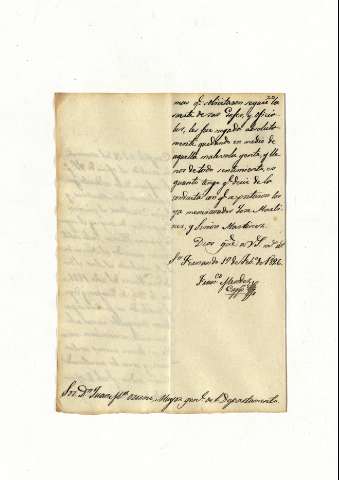 mas qe. alistaron seguir la
suerte de sus Gefes, y oficia
les, les fue negado absoluta-
mente quedando en medio de
aquella malvada gente, y lle
nos de todo sentimiento, es
quanto tengo qe. decir de la
conducta con qe. se portaron los
ya mencionados Jose Marti-
nez, y Simon
Dios gue. a VS. ms. as.
Sn. Fernando 1º de 1826
Franco. Mendez
Sor. Dn. Juan Mayor genl. de el Departamento.